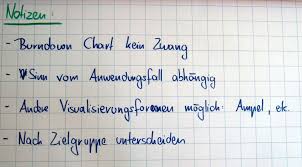 Notizen:
- Burndown Chart kein Zwang
- Sinn vom Anwendungsfall abhängig
- Andere Visualisierungsformen möglich: Ampel, etc.
- Nach Zielgruppe unterscheiden